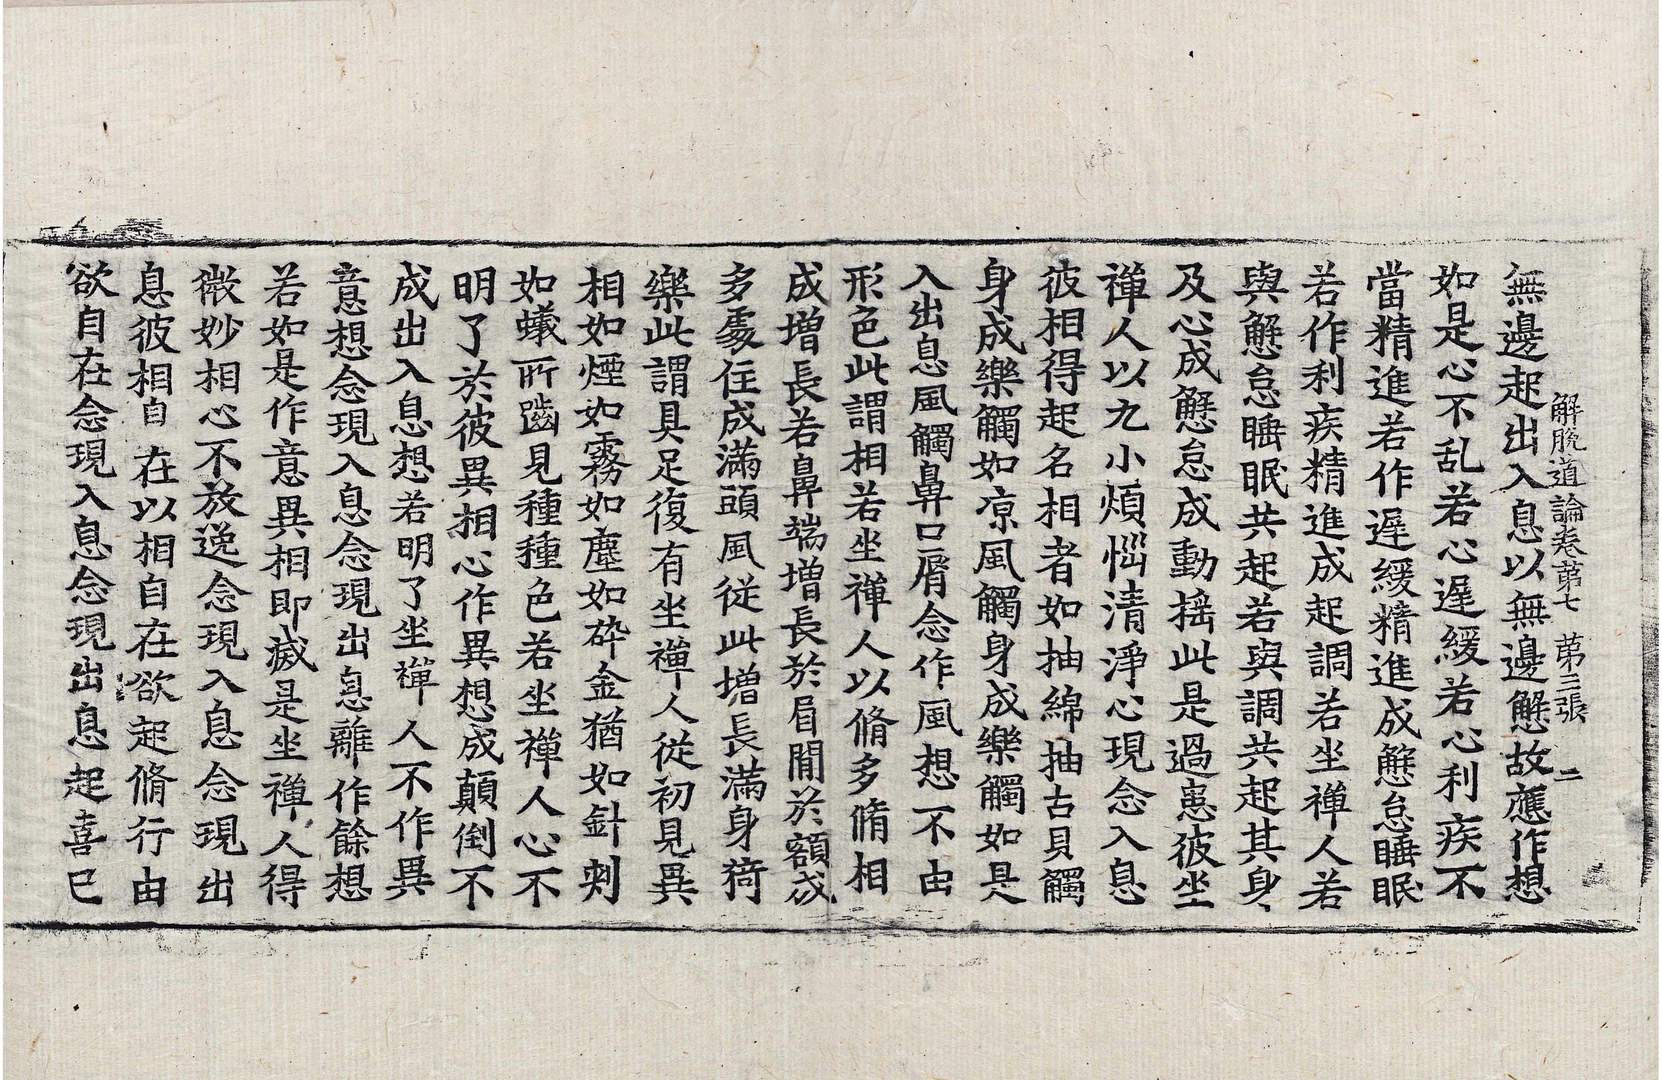 解脫道論卷第七　第三張　二
無邊起出入息以無邊懈故應作想
如是心不乱若心遲緩若心利疾不
當精進若作遲緩精進成懈怠睡眠
若作利疾精進成起調若坐禪人若
與懈怠睡眠共起若與調共起其身
及心成懈怠成動搖此是過患彼坐
禪人以九小煩惱清淨心現念入息
彼相得起名相者如抽綿抽古貝觸
身成樂觸如凉風觸身成樂觸如是
入出息風觸鼻口脣念作風想不由
形色此謂相若坐禪人以脩多脩相
成增長若鼻端增長於眉間於額成
多處住成滿頭風從此增長滿身猗
樂此謂具足復有坐禪人從初見異
相如煙如霧如塵如碎金猶如針刺
如蟻所嚙見種種色若坐禪人心不
明了於彼異相心作異想成顛倒不
成出入息想若明了坐禪人不作異
意想念現入息念現出息離作餘想
若如是作意異相即滅是坐禪人得
微妙相心不放逸念現入息念現出
息彼相自在以相自在欲起脩行由
欲自在念現入息念現出息起喜已